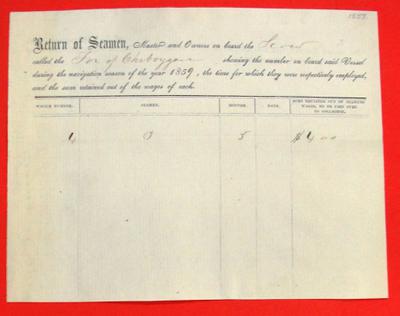 1859.
Return of Seamen, Master and Owners on board the Scow
called the Fox of Cheboygan showing the number on board said Vessel
during the navigation season of the year 1859, the time for which they were repectively employed,
and the sum retained out of the wages of each.
WHOLE NUMBER. SEAMEN. MONTHS. DAYS. SUMS RETAINED OUT OF SEAMENS
WAGES, TO BE PAID OVER
TO COLLECTOR.
4 3 5 $4.00